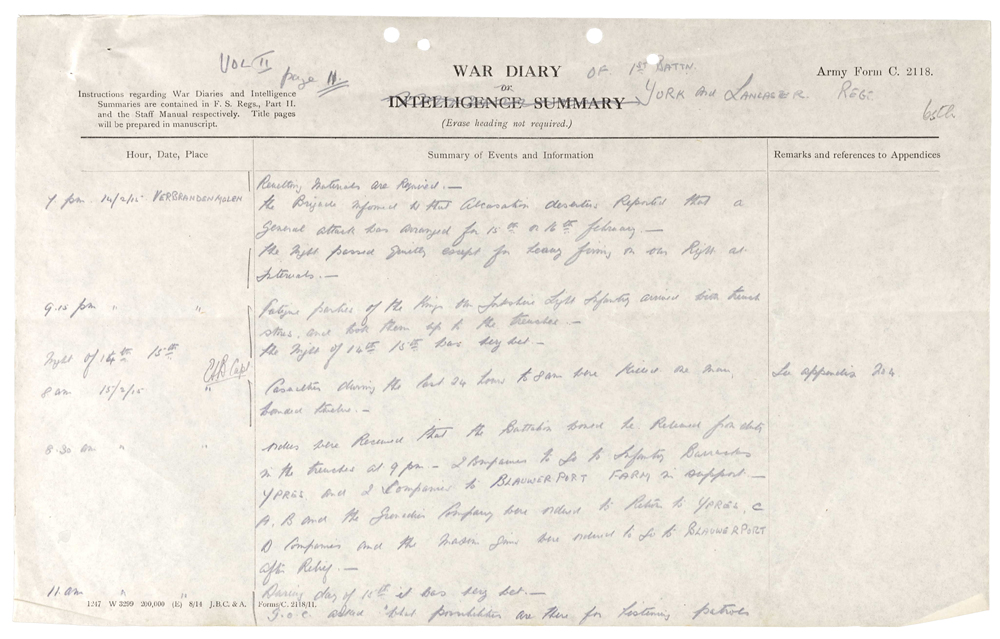 VOL II page 11.
WAR DIARY OF 1st BATTN.
OR
INTELLIGENCE SUMMARY YORK and LANCASTER REGt
(Erase heading not required.)
Army Form C. 2118.
65th
Instructions regarding War Diaries and Intelligence
Summaries are contained in F. S. Regs., Part II.
and the Staff Manual respectively. Title pages
will be prepared in manuscript.
Hour, Date, Place
Summary of Events and Information
Remarks and references to Appendices
Materials are Required.—
7 pm 14/2/15 VERBRANDENMOLEN the Brigade informed us that deserters Reported that a
General attack was arranged for 15th or 16th February.—
the Night passed quietly except for heavy firing on our Right at
Intervals.—
9.15 pm " " Fatigue parties of the Kings Own Yorkshire Light Infantry arrived with trench
stores and took them up to the trenches.—
Night of 14th 15th the Night of 14th 15th was very wet.—
Capt
8 am 15/2/15 " Casualties during the last 24 hours to 8am were killed one man
wounded twelve.— See appendix 204
8.30 am " " orders were Received that the Battalion would be Relieved from duty
in the trenches at 9 pm – 2 companies to Go to Infantry Barracks
YPRES and 2 Companies to BLAUWERPORT FARM in support.—
A. B and the Grenadier Company were ordered to Return to YPRES, C
D Companies and the Maxim Guns were ordered to Go to BLAUWERPORT
after Relief.—
11 am " " During day of 15th it was very wet.—
G.O.C. asked what possibilities are there for listening patrols
1247 W 3299 200,000 (E) 8/14 J.B.C. & A. Forms/C. 2118/11.